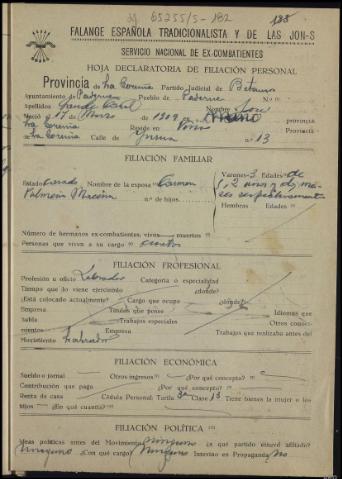 65255/S-182
185
FALANGE ESPAÑOLA TRADICIONALISTA Y DE LAS JON-S
SERVICIO NACIONAL DE EX-COMBATIENTES
HOJA DECLARATORIA DE FILIACIÓN PERSONAL
Provincia de La Coruña Partido Judicial de Betanzos
Ayuntamiento de Paderne Pueblo de Paderne N.º
Apellidos Nombre José
Nació el 17 de Marzo de 1909 en Provincia
La Coruña Reside en Provincia
de La Coruña Calle de n.º 13
FILIACIÓN FAMILIAR
Estado Casado Nombre de la esposa Carmen Varones 3 Edades de
n.º de hijos. respectivamente
Hembras Edades
Número de hermanos ex-combatientes, vivos muertos
Personas que viven a su cargo cuatro
FILIACIÓN PROFESIONAL
Profesión u oficio Labrador Categoría o especialidad
Tiempo que lo viene ejerciendo ¿dónde?
¿Está colocado actualmente? Cargo que ocupa ¿dónde?
Empresa Tiempo que posee Idiomas que
habla Trabajos especiales Otros conoci-
mientos Empresa Trabajos que realizaba antes del
Movimiento Labrador
FILIACIÓN ECONÓMICA
Sueldo o jornal Otros ingresos ¿Por qué concepto?
Contribución que paga ¿Por qué concepto?
Renta de casa Cédula Personal: Tarifa 3ª Clase 13 Tiene bienes la mujer o los
hijos ¿En qué cuantía?
FILIACIÓN POLÍTICA
Ideas políticas antes del Movimiento ninguno ¿a qué partido estuvo afiliado?
ninguno ¿Con qué cargo? ninguno Intervino en Propaganda No